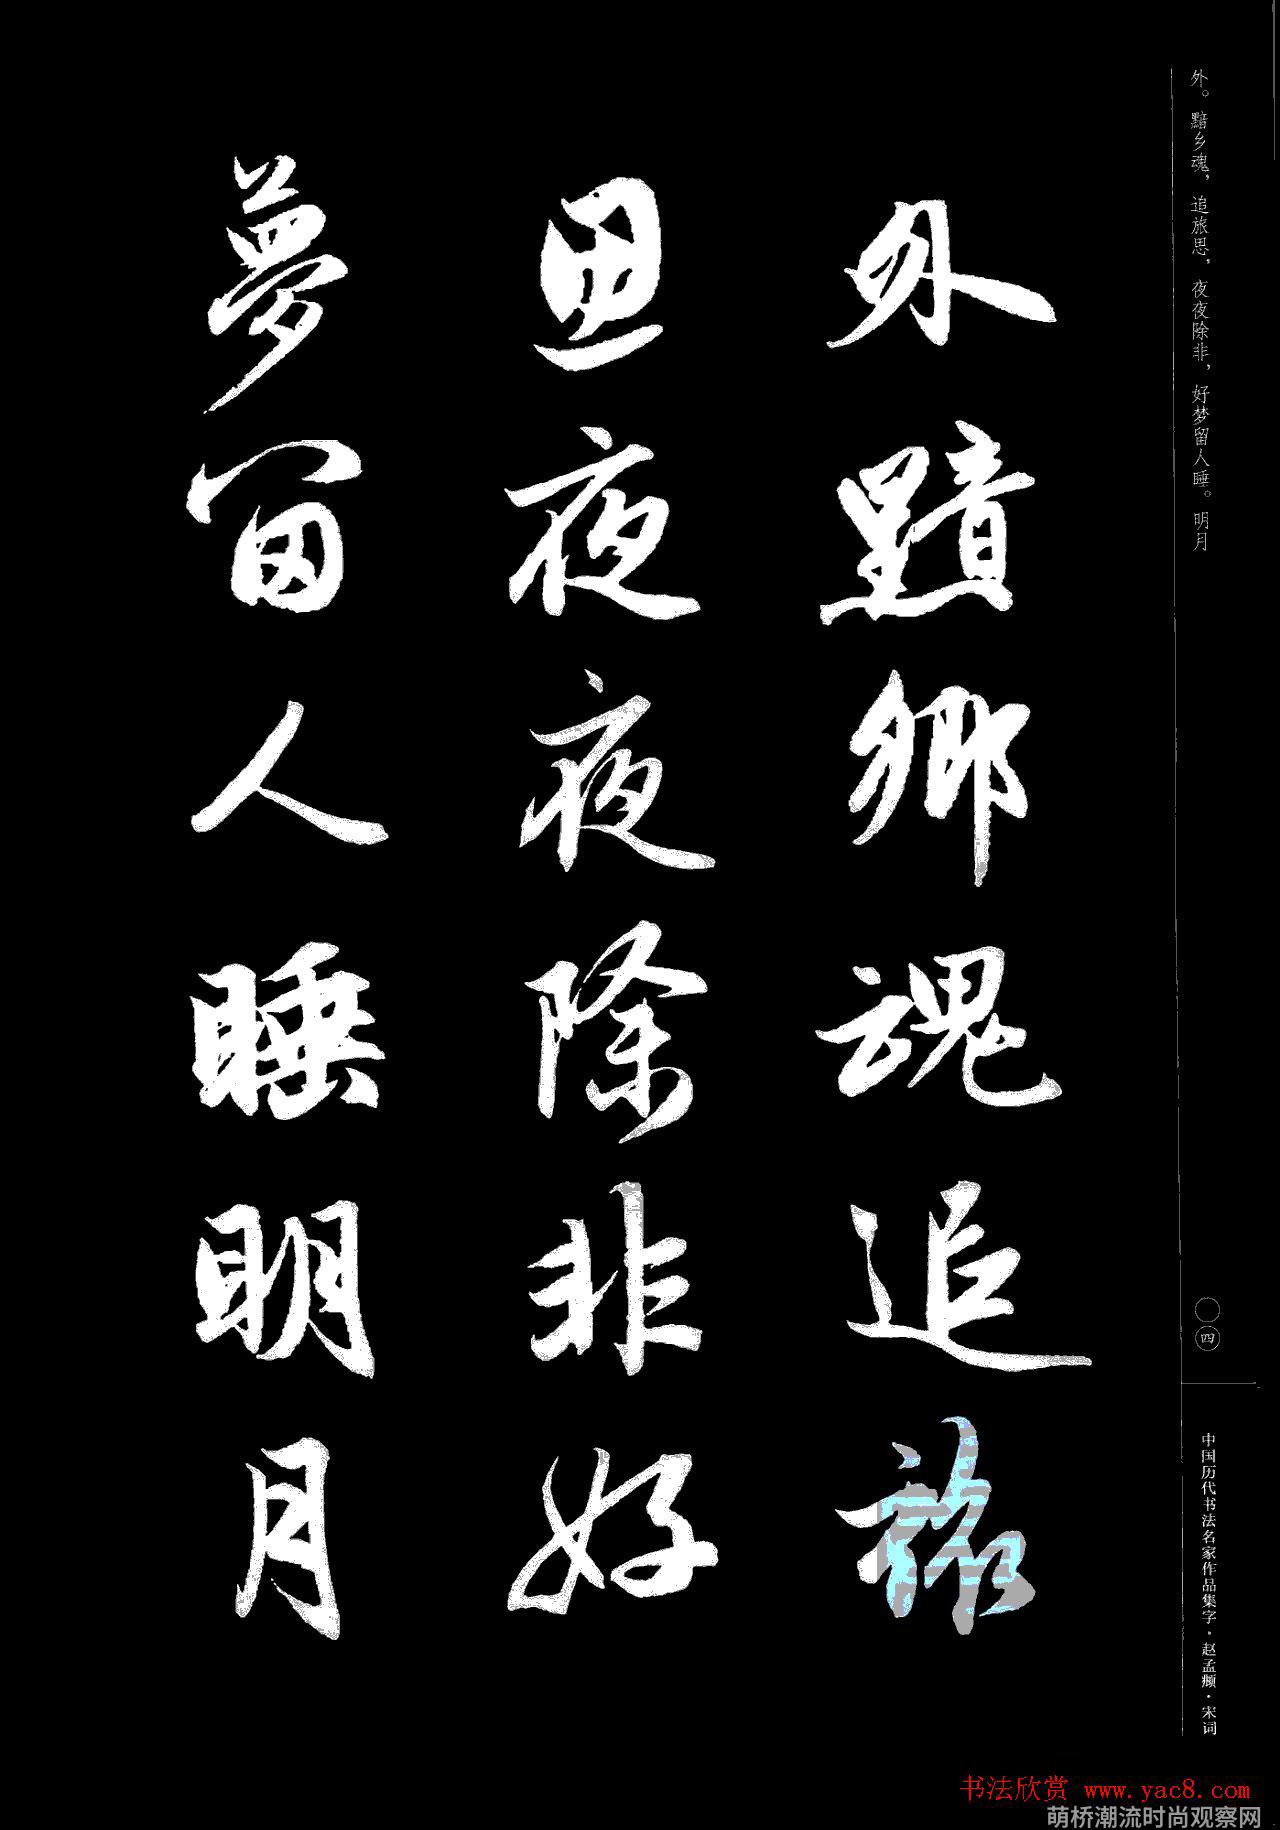 外。黯乡魂，追旅思，夜夜除非，好梦留人睡。明月
外黯鄉魂追旅
思夜夜除非好
夢留人睡明月
〇四
中国历代书法名家作品集字·赵孟頫·宋词
书法欣赏 www.yac8.com
萌桥潮流时尚观察网